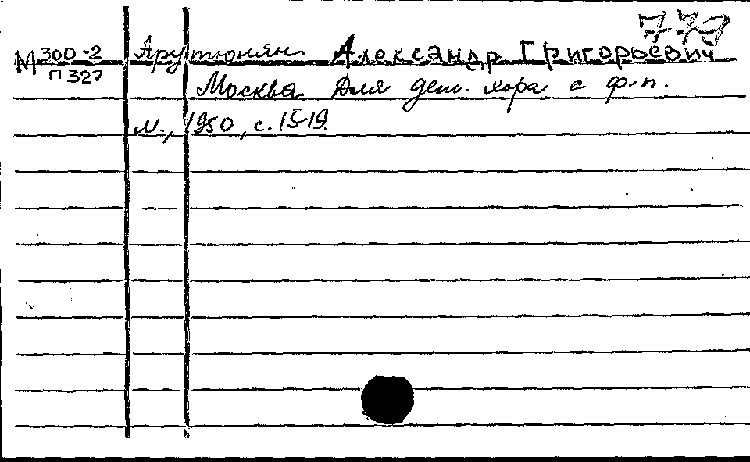 773
М 300-2 Арутюнян Александр Григорьевич
П 327
Москва. Для дет. хора с ф-п.
М., 1950, с. 15-19.